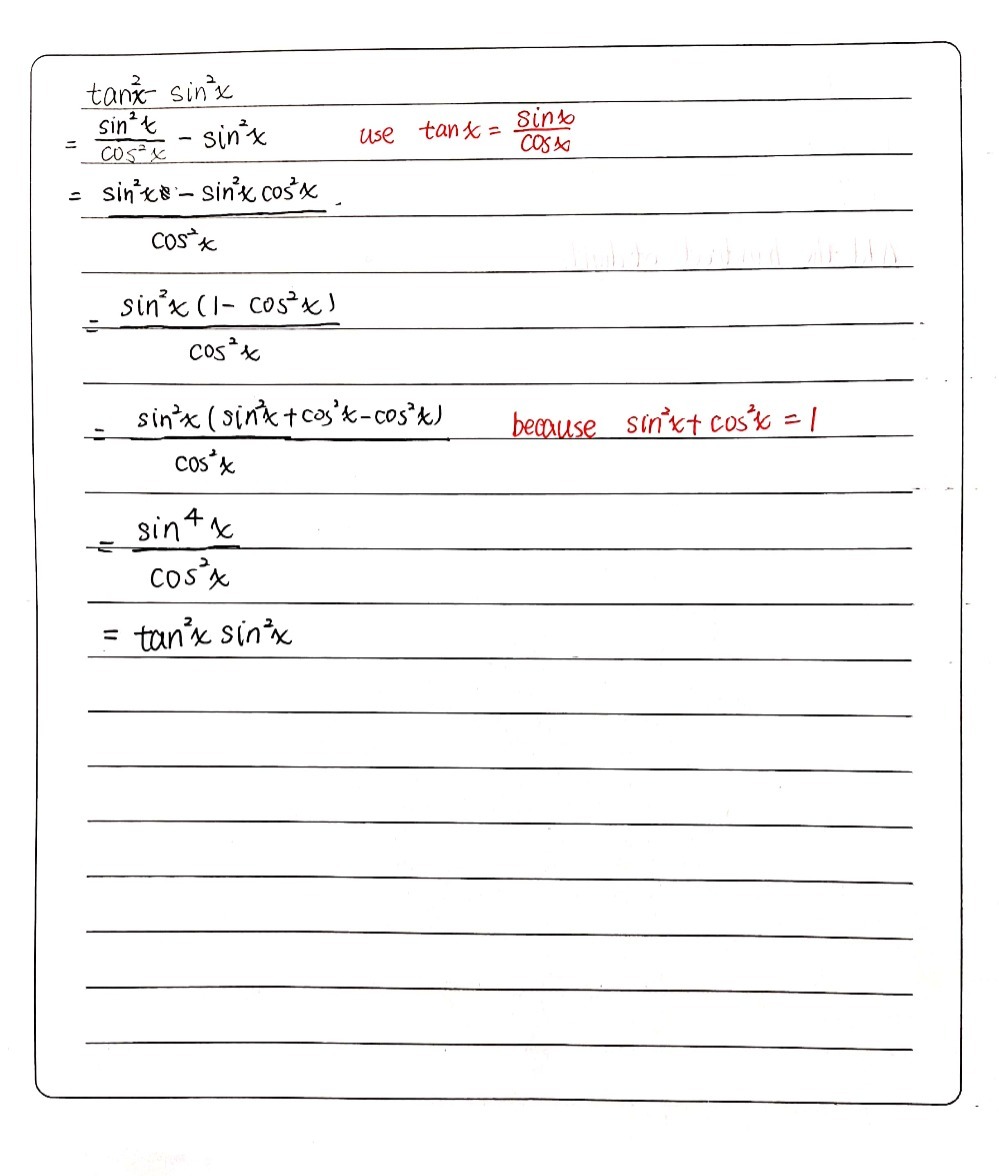 tan²x - sin²x
= sin²x/cos²x - sin²x use tan x = sin x/cos x
= sin²x - sin²x cos²x
cos²x
= sin²x (1 - cos²x)
cos²x
= sin²x (sin²x + cos²x - cos²x) because sin²x + cos²x = 1
cos²x
= sin⁴x
cos²x
= tan²x sin²x